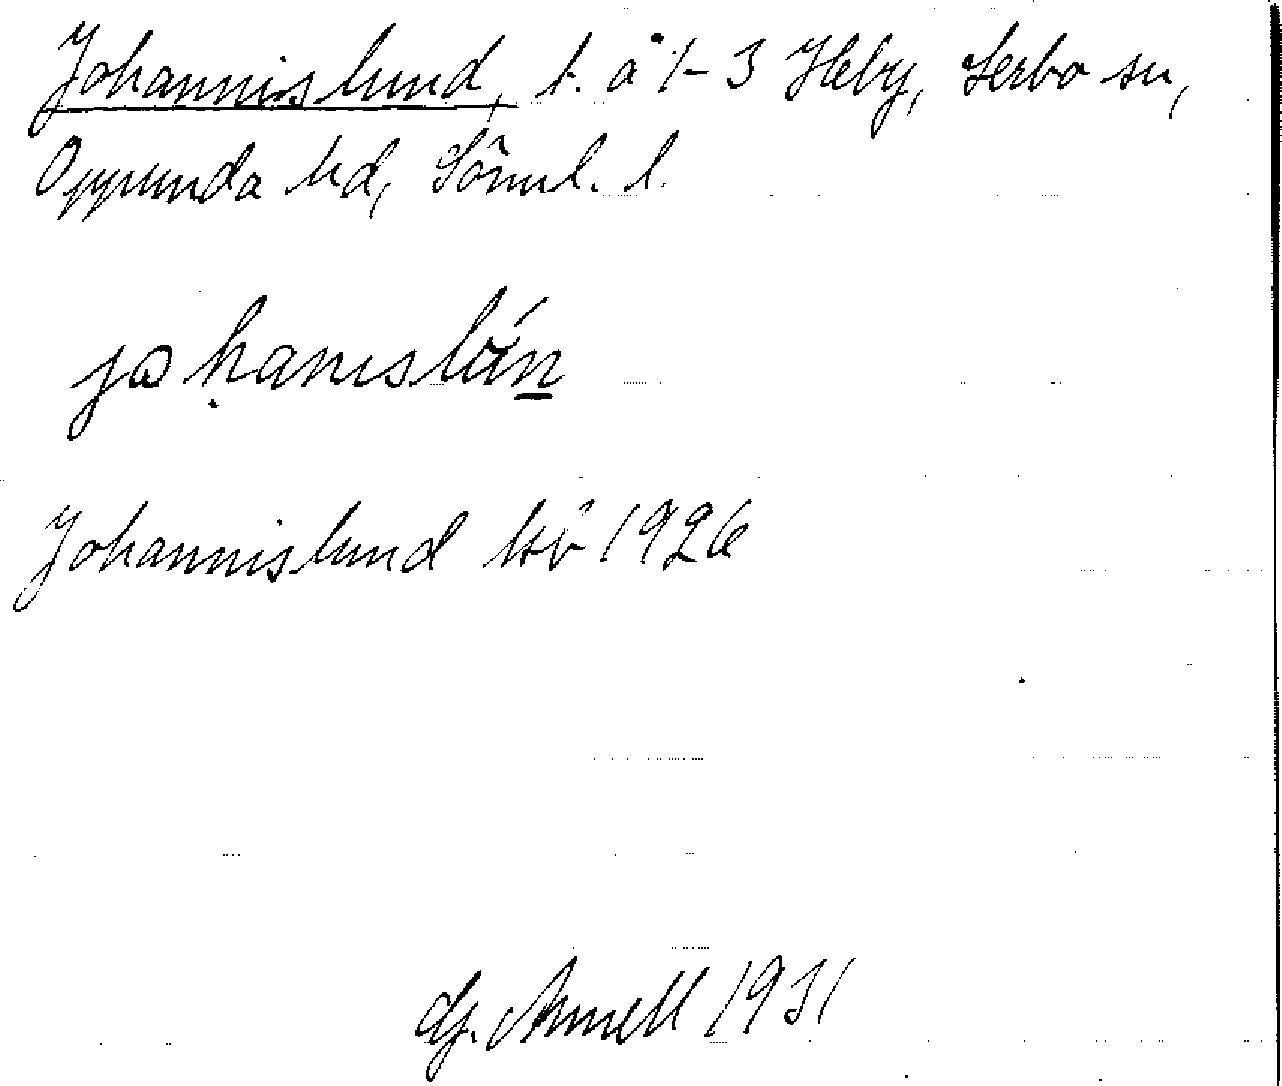 Johannislund, t. å 1-3 Heby, Lerbo sn,
Oppunda hd, Söml. l.
johanislún
Johannislund hsö 1926
Gj. Annell 1931